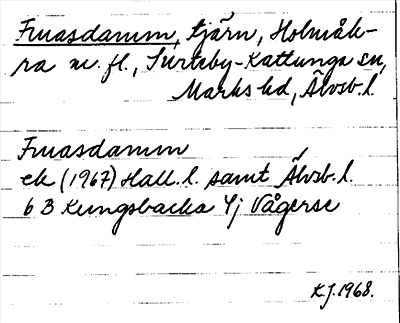 Fruasdamm, tjärn, Holmåk-
ra m. fl., Surteby-Kattunga sn,
Marks hd, Älvsb. l.
Fruasdamm
ek (1967) Hall. l. samt Älvsb. l.
6 B Kungsbacka 4j Vågerse
K.J. 1968.